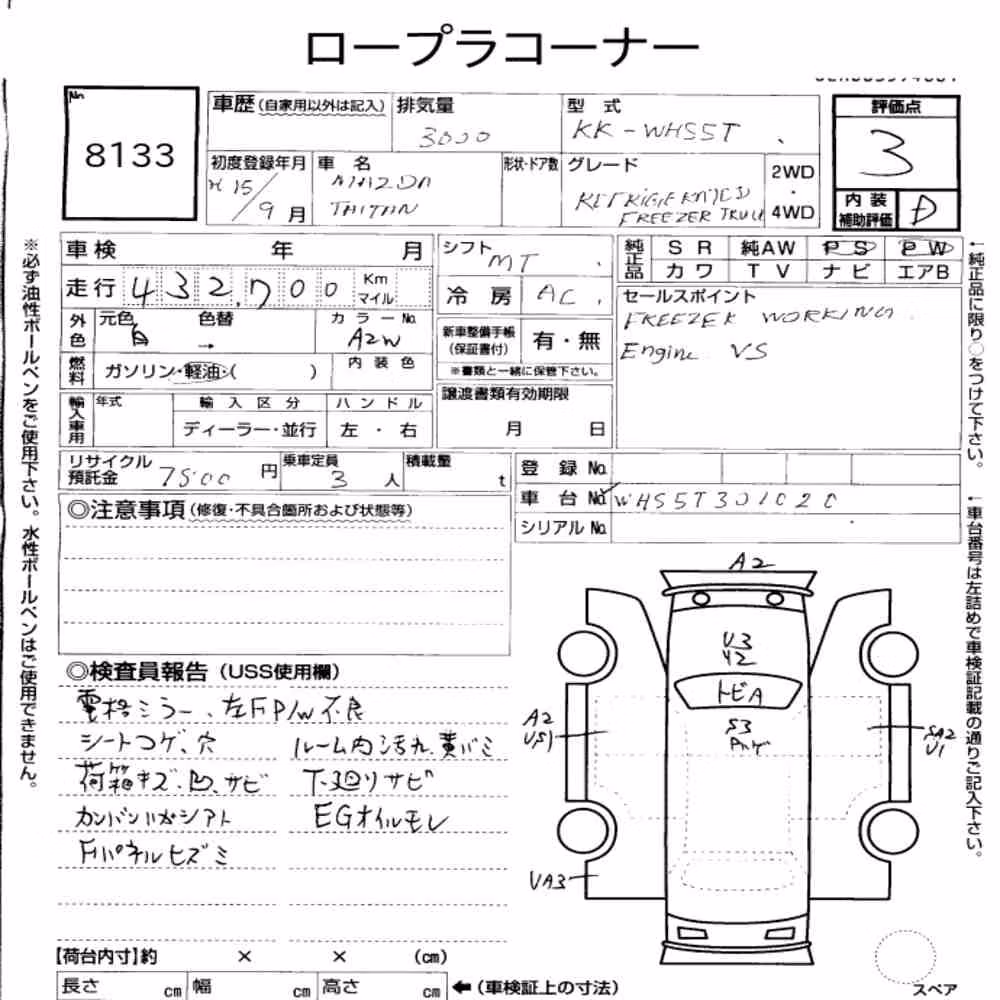 ロープラコーナー
No. 8133
車歴 (自家用以外は記入)
排気量 3000
型式 KK-WH55T
評価点 3
内装補助評価 D
初度登録年月 H15/9月
車名 MAZDA TAITAN
形状・ドア数
グレード
FREEZER TRUCK
2WD・4WD
車検 年 月
走行 432,700 Km マイル
シフト MT
冷房 AC
純正品 SR 純AW PS PW
カワ TV ナビ エアB
外色 元色 白 色替 → カラーNo. A2W
内装色
燃料 ガソリン・軽油・( )
新車整備手帳(保証書付) 有・無
※書類と一緒に保管下さい。
セールスポイント
FREEZER WORKING
Engine VS
輸入車用 年式 輸入区分 ディーラー・並行 ハンドル 左・右
譲渡書類有効期限 月 日
リサイクル預託金 7500円
乗車定員 3人
積載量 t
登録No.
車台No. WH55T301020
シリアルNo.
◎注意事項 (修復・不具合箇所および状態等)
◎検査員報告 (USS使用欄)
電格ミラー、左FP/W不良
シートコゲ、穴 ルーム内汚れ、黄バミ
荷箱キズ、凹、サビ 下廻りサビ
EGオイルモレ
Fパネルヒズミ
A2
U3
Y2
トビA
S3
A2
US1
SA2
U1
UA3
スペア
【荷台内寸】約 × × (cm)
長さ cm 幅 cm 高さ cm ←(車検証上の寸法)
※必ず油性ボールペンをご使用下さい。水性ボールペンはご使用できません。
←純正品に限り○をつけて下さい。
←車台番号は左詰めで車検証記載の通りご記入下さい。